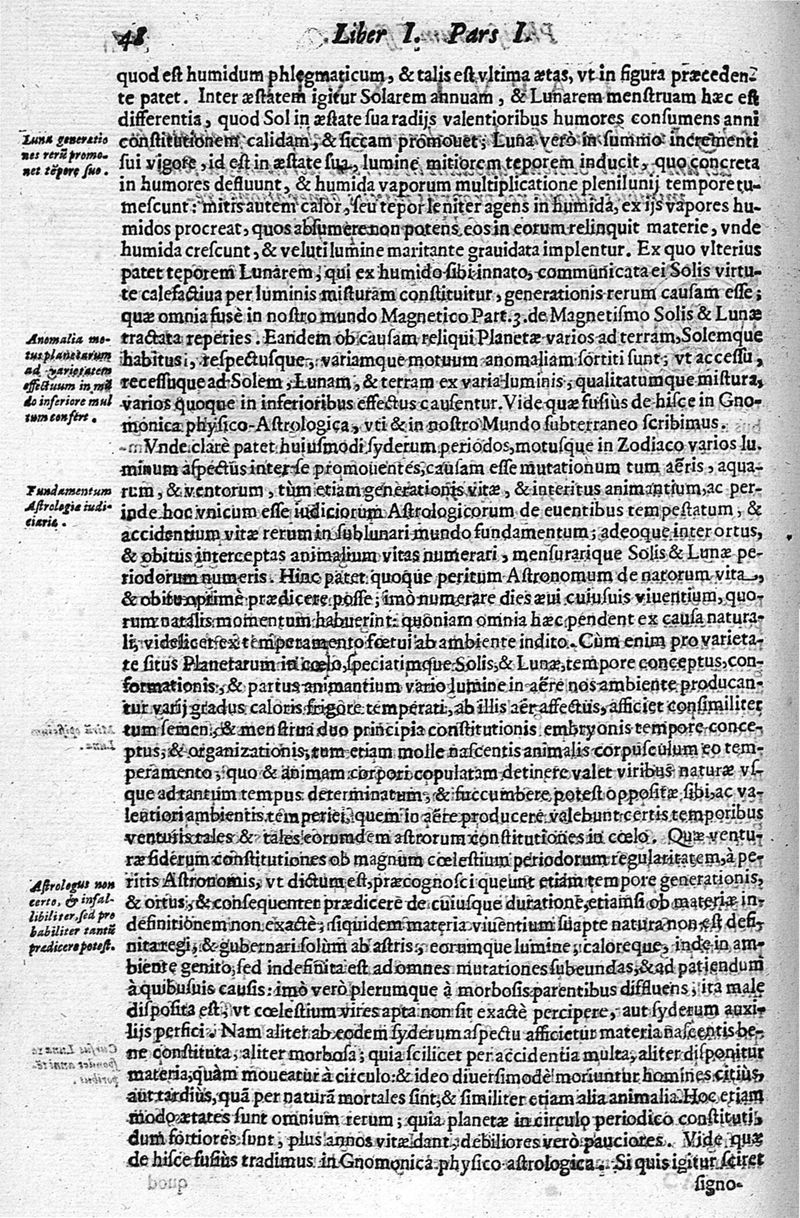 48 Liber I. Pars I.
quod est humidum phlegmaticum, & talis est vltima ætas, vt in figura præceden-
te patet. Inter æstatem igitur Solarem annuam, & Lunarem menstruam hæc est
differentia, quod Sol in æstate sua radijs valentioribus humores consumens anni
constitutionem calidam, & siccam promouet; Luna verò in summo incrementi
sui vigore, id est in æstate sua, lumine mitiorem teporem inducit, quo concreta
in humores defluunt, & humida vaporum multiplicatione plenilunij tempore tu-
mescunt: mitis autem calor, seu tepor leniter agens in humida, ex ijs vapores hu-
midos procreat, quos absumere non potens eos in eorum relinquit materie, vnde
humida crescunt, & veluti lumine maritante grauidata implentur. Ex quo vlterius
patet teporem Lunarem, qui ex humido sibi innato, communicata ei Solis virtu-
te calefactiua per luminis misturam constituitur, generationis rerum causam esse;
quæ omnia fusè in nostro mundo Magnetico Part. 3. de Magnetismo Solis & Lunæ
tractata reperies. Eandem ob causam reliqui Planetæ varios ad terram, Solemque
habitus, respectusque, variamque motuum anomaliam sortiti sunt; vt accessu,
recessuque ad Solem, Lunam, & terram ex varia luminis, qualitatumque mistura,
varios quoque in inferioribus effectus causentur. Vide quæ fusiùs de hisce in Gno-
monica physico-Astrologica, vti & in nostro Mundo subterraneo scribimus.
Vnde clarè patet huiusmodi syderum periodos, motusque in Zodiaco varios lu-
minum aspectus inter se promouentes, causam esse mutationum tum aëris, aqua-
rum, & ventorum, tùm etiam generationis vitæ, & interitus animantium, ac per-
inde hoc vnicum esse iudiciorum Astrologicorum de euentibus tempestatum, &
accidentium vitæ rerum in sublunari mundo fundamentum; adeoque inter ortus,
& obitus interceptas animalium vitas numerari, mensurarique Solis & Lunæ pe-
riodorum numeris. Hinc patet quoque peritum Astronomum de natorum vita,
& obitu optimè prædicere posse; imò numerare dies æui cuiusuis viuentium, quo-
rum natalis momentum habuerint: quoniam omnia hæc pendent ex causa natura-
li, videlicet ex temperamento fœtui ab ambiente indito. Cùm enim pro varieta-
te situs Planetarum in cœlo, speciatimque Solis, & Lunæ, tempore conceptus, con-
formationis, & partus animantium vario lumine in aëre nos ambiente producan-
tur varij gradus caloris frigore temperati, ab illis aër affectus, afficiet consimiliter
tum semen, & menstrua duo principia constitutionis embryonis tempore conce-
ptus, & organizationis, tum etiam molle nascentis animalis corpusculum eo tem-
peramento, quo & animam corpori copulatam detinere valet viribus naturæ vs-
que ad tantum tempus determinatum, & succumbere potest oppositæ sibi, ac va-
lentiori ambientis temperiei, quem in aëre producere valebunt certis temporibus
venturis tales & tales eorumdem astrorum constitutiones in cœlo. Quæ ventu-
ræ siderum constitutiones ob magnum cœlestium periodorum regularitatem, à pe-
ritis Astronomis, vt dictum est, præcognosci queunt etiam tempore generationis,
& ortus, & consequenter prædicere de cuiusque duratione, etiamsi ob materiæ in-
definitionem non exactè; siquidem materia viuentium suapte natura non est defi-
nita regi, & gubernari solùm ab astris, eorumque lumine, caloreque, inde in am-
biente genito, sed indefinita est ad omnes mutationes subeundas, & ad patiendum
à quibusuis causis: imò verò plerumque à morbosis parentibus diffluens, ita male
disposita est, vt cœlestium vires apta non sit exactè percipere, aut syderum auxi-
lijs perfici. Nam aliter ab eodem syderum aspectu afficietur materia nascentis be-
ne constituta, aliter morbosa; quia scilicet per accidentia multa, aliter disponitur
materia, quàm moueatur à circulo: & ideo diuersimodè moriuntur homines citiùs,
aut tardiùs, quā per naturā mortales sint, & similiter etiam alia animalia. Hoc etiam
modo ætates sunt omnium rerum; quia planetæ in circulo periodico constituti,
dum fortiores sunt, plus annos vitæ dant, debiliores verò pauciores. Vide quæ
de hisce fusiùs tradimus in Gnomonica physico-astrologica. Si quis igitur sciret
signo-
Luna generatio
nes rerū promo-
uet tēpore suo.
Anomalia mo-
tus planetarum
ad varietatem
effectuum in mū
do inferiore mul
tum confert.
Fundamentum
Astrologiæ iudi-
ciariæ.
Astrologus non
certo, & infal-
libiliter, sed pro
babiliter tantū
prædicere potest.